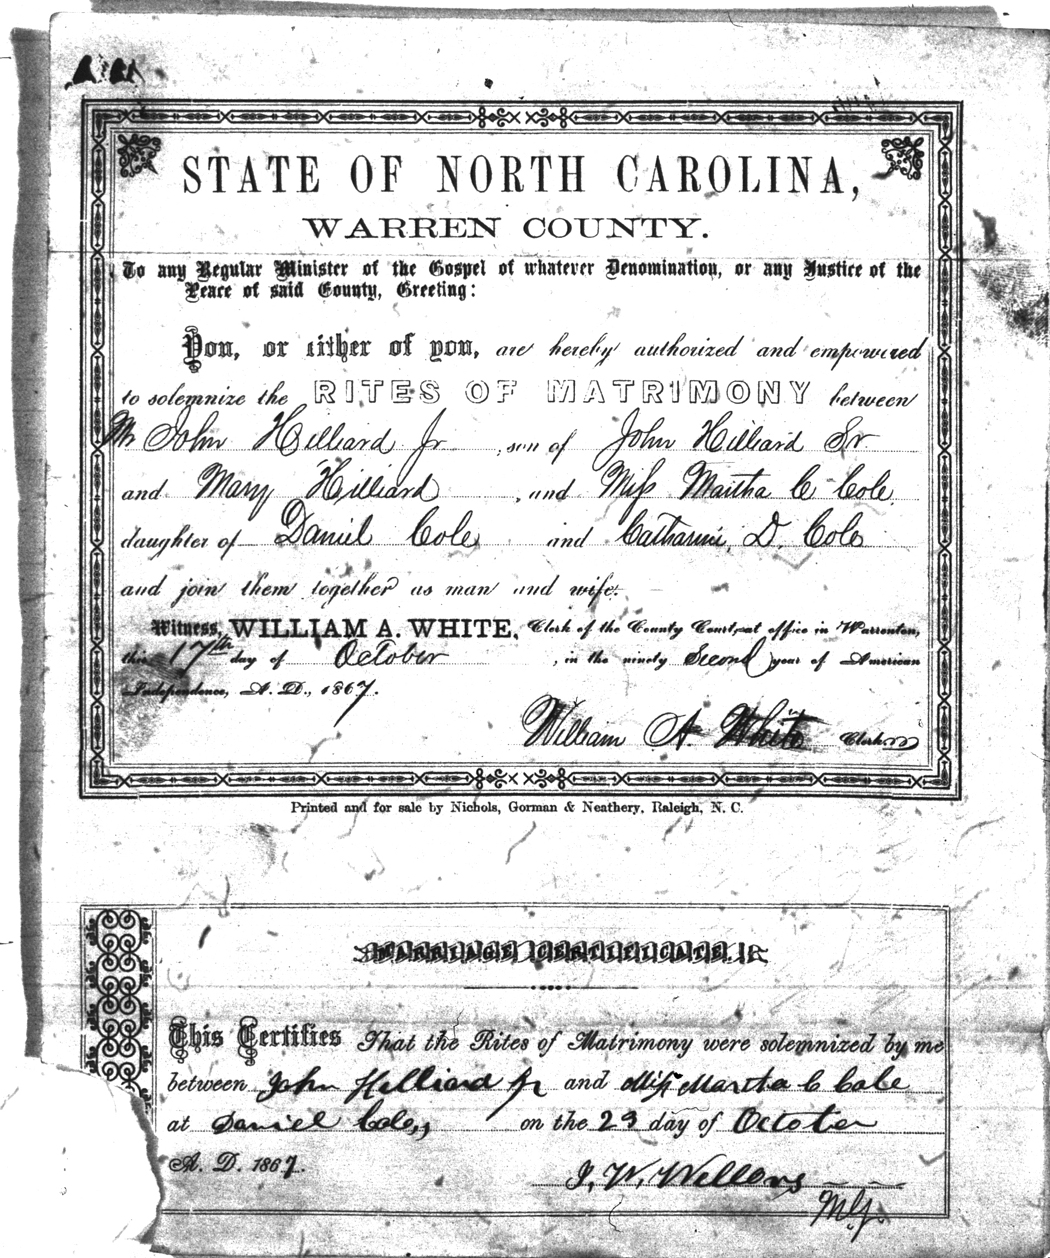 STATE OF NORTH CAROLINA,
WARREN COUNTY.
To any Regular Minister of the Gospel of whatever Denomination, or any Justice of the
Peace of said County, Greeting:
You, or either of you, are hereby authorized and empowered
to solemnize the RITES OF MATRIMONY between
Mr John Hilliard Jr, son of John Hilliard Sr
and Mary Hilliard, and Miss Martha C Cole
daughter of Daniel Cole and Catharine D. Cole
and join them together as man and wife.
Witness, WILLIAM A. WHITE, Clerk of the County Court, at office in Warrenton,
this 17th day of October, in the ninety Second year of American
Independence, A. D., 1867.
William A. White Clerk
Printed and for sale by Nichols, Gorman & Neathery, Raleigh, N. C.
MARRIAGE CERTIFICATE.
This Certifies That the Rites of Matrimony were solemnized by me
between John Hilliard Jr and Miss Martha C Cole
at Daniel Cole,, on the 23 day of October
A. D. 1867.
J. W. Wellons
M.G.